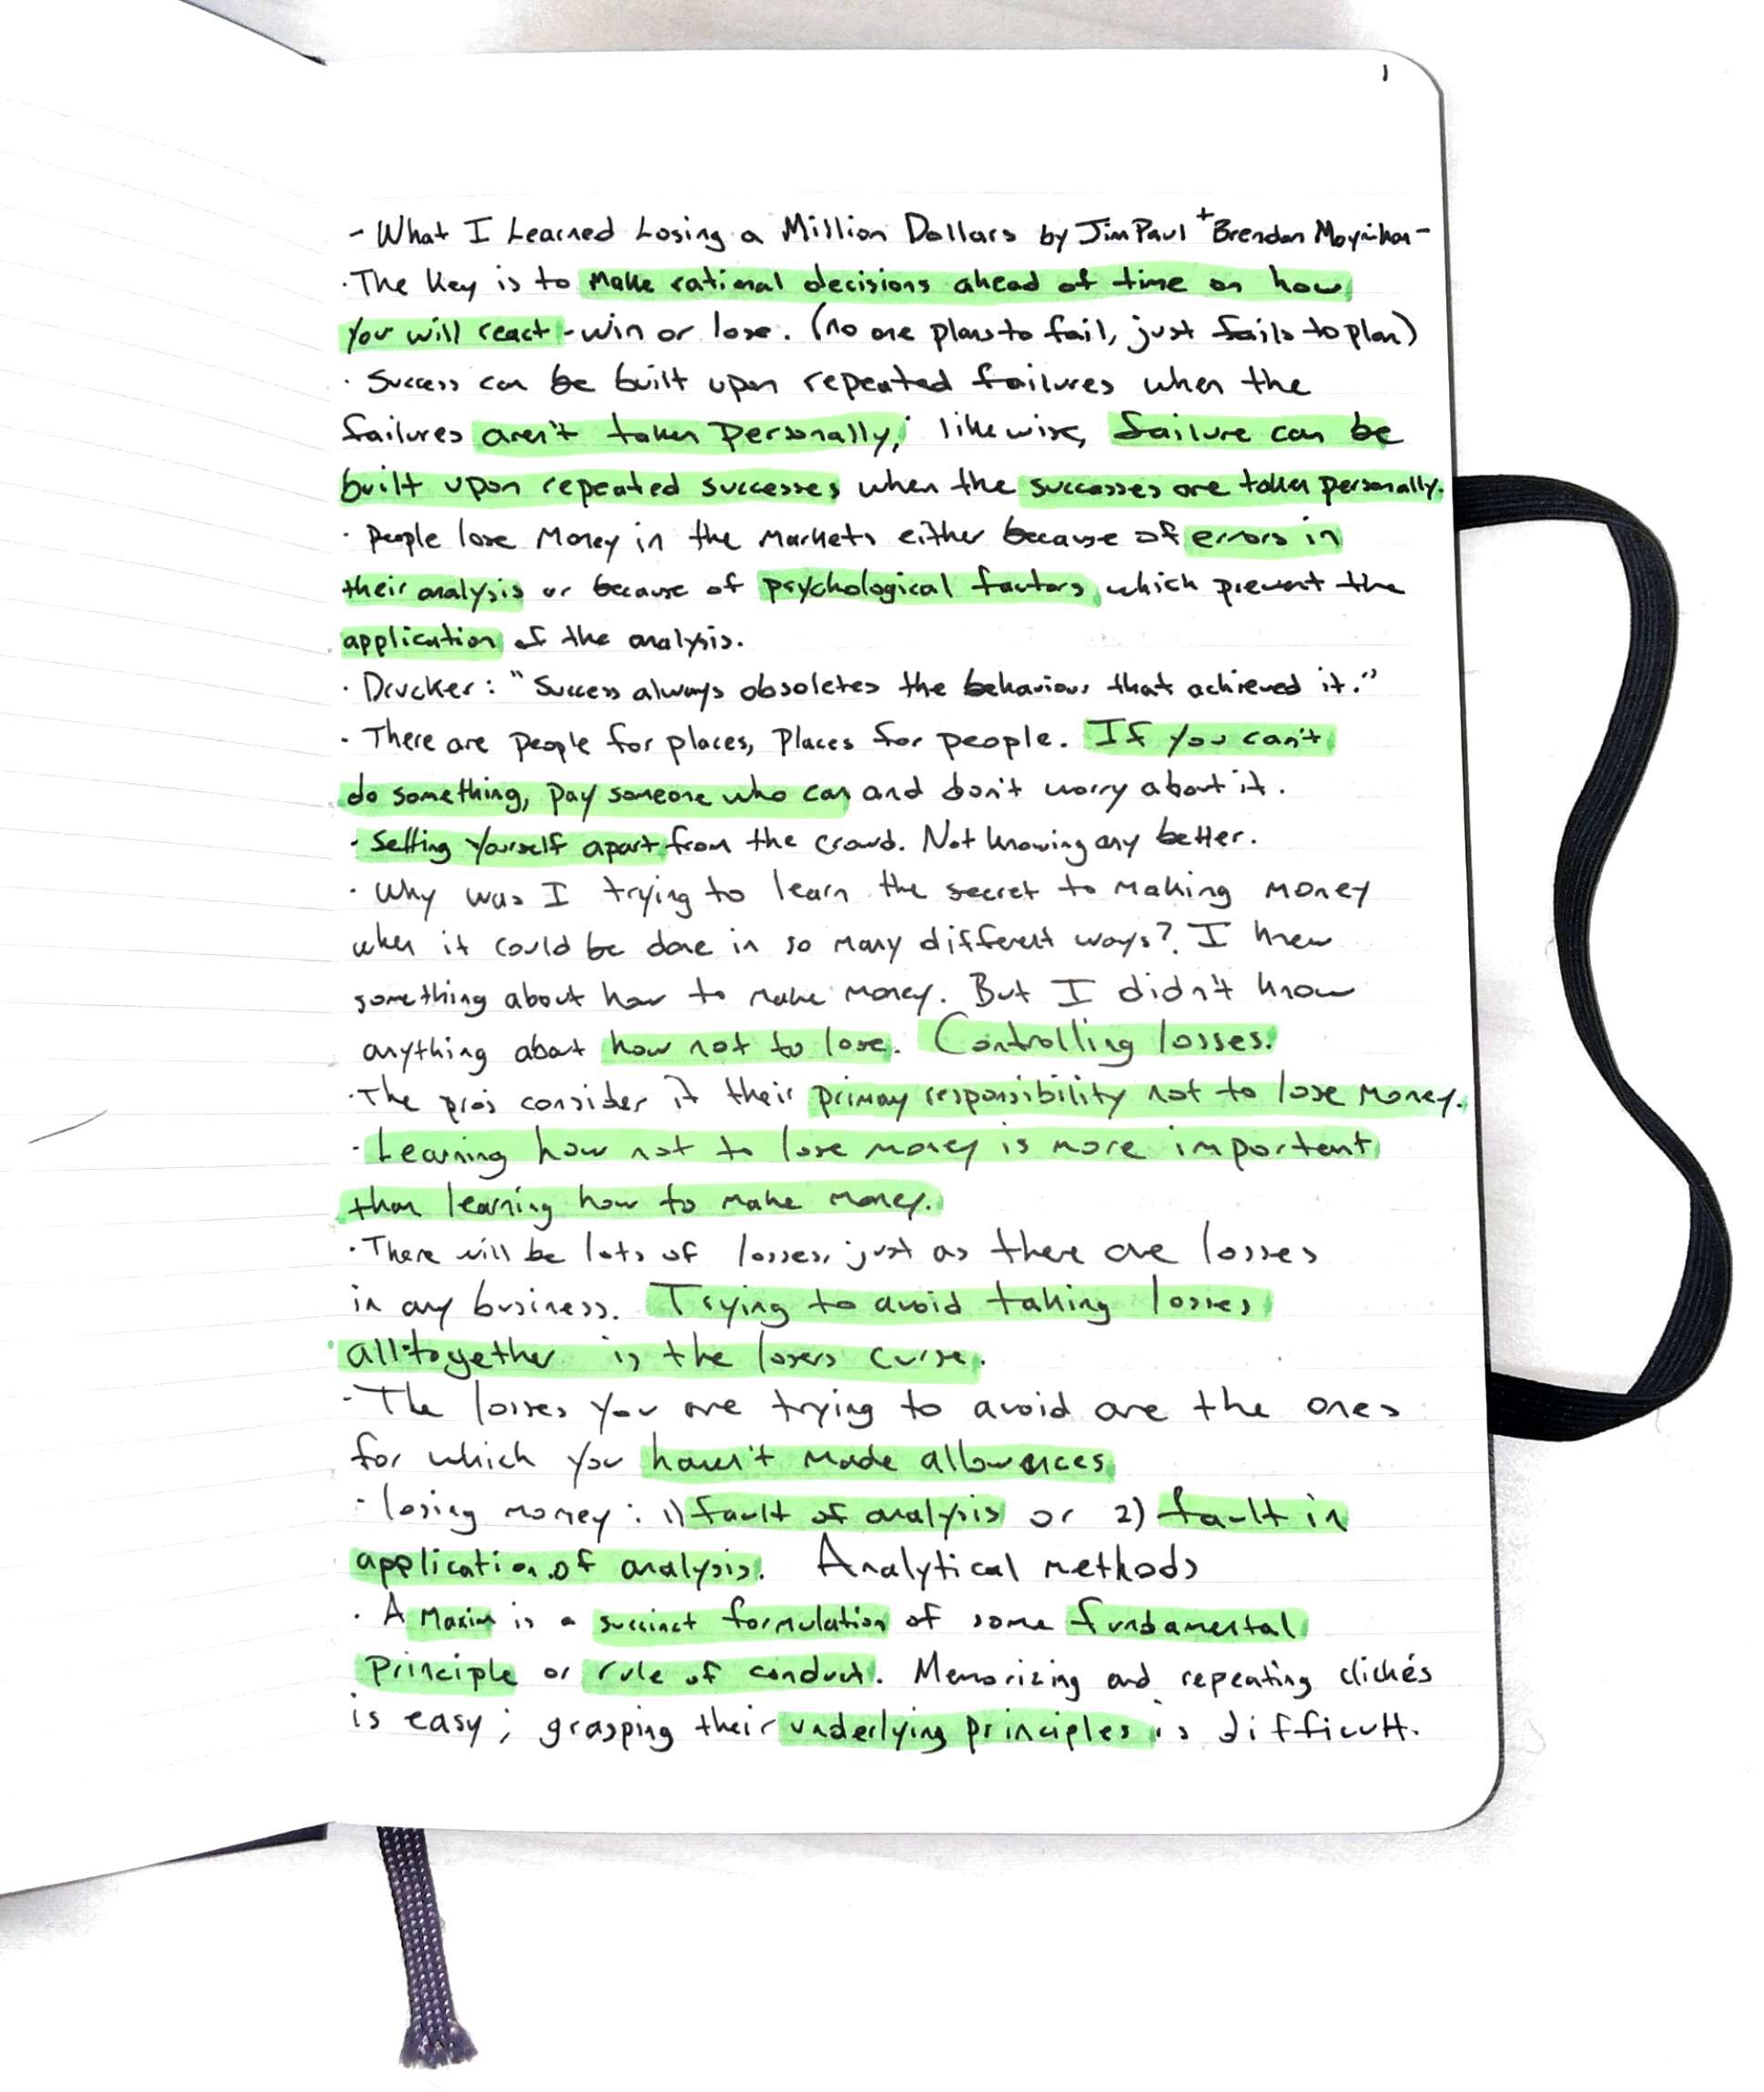 1
- What I Learned Losing a Million Dollars by Jim Paul + Brendan Moynihan -
· The key is to make rational decisions ahead of time on how
you will react - win or lose. (no one plans to fail, just fails to plan)
· Success can be built upon repeated failures when the
failures aren't taken personally; likewise, failure can be
built upon repeated successes when the successes are taken personally.
· People lose money in the markets either because of errors in
their analysis or because of psychological factors which prevent the
application of the analysis.
· Drucker: "Success always obsoletes the behaviour that achieved it."
· There are people for places, places for people. If you can't
do something, pay someone who can and don't worry about it.
· Setting yourself apart from the crowd. Not knowing any better.
· Why was I trying to learn the secret to making money
when it could be done in so many different ways? I knew
something about how to make money. But I didn't know
anything about how not to lose. Controlling losses.
· The pros consider it their primary responsibility not to lose money.
· Learning how not to lose money is more important
than learning how to make money.
· There will be lots of losses, just as there are losses
in any business. Trying to avoid taking losses
alltogether is the losers curse.
· The losses you are trying to avoid are the ones
for which you haven't made allowances
· losing money: 1) fault of analysis or 2) fault in
application of analysis. Analytical methods
· A Maxim is a succinct formulation of some fundamental
principle or rule of conduct. Memorizing and repeating clichés
is easy; grasping their underlying principles is difficult.